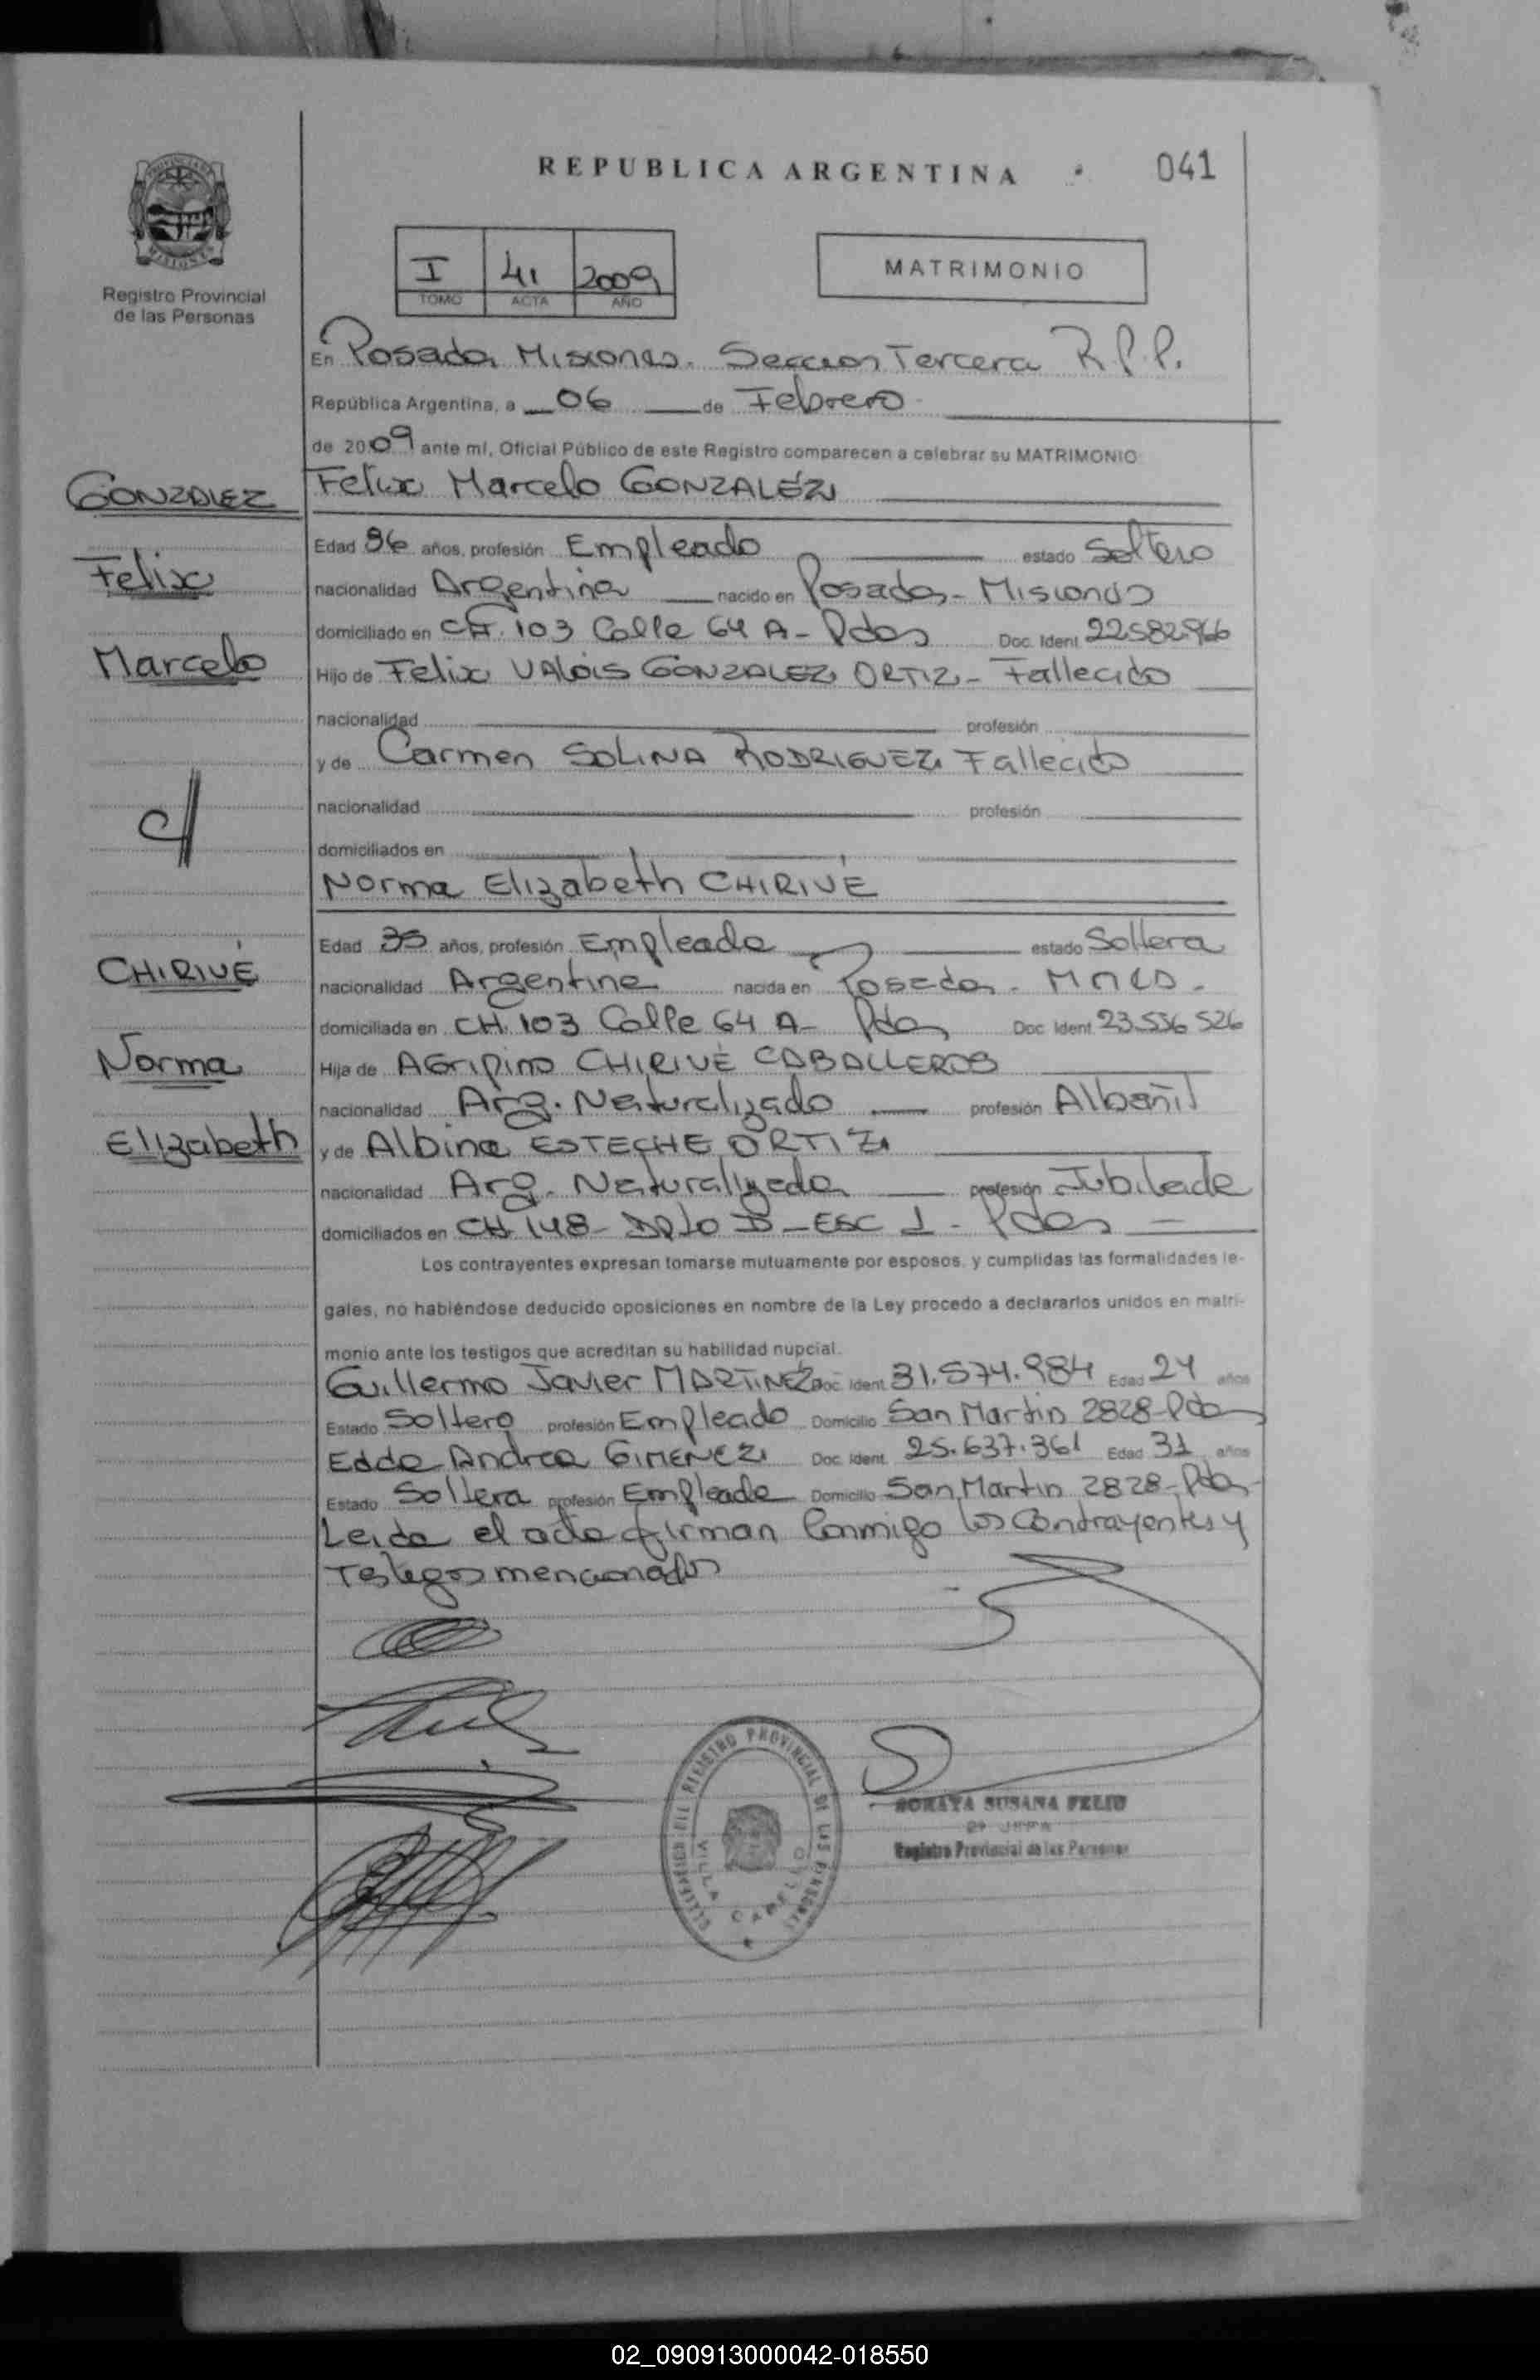 REPUBLICA ARGENTINA
041
Registro Provincial
de las Personas
I 41 2009
TOMO ACTA AÑO
MATRIMONIO
En Posadas Misiones. Seccion Tercera R.P.P.
República Argentina, a 06 de Febrero
de 2009 ante mí, Oficial Público de este Registro comparecen a celebrar su MATRIMONIO:
GONZALEZ
Felix Marcelo GONZALEZ
Edad 36 años, profesión Empleado estado Soltero
Felix
nacionalidad Argentina nacido en Posadas - Misiones
domiciliado en CH. 103 Calle 64 A - Pdas Doc. Ident. 22.582.966
Marcelo
Hijo de Felix VALOIS GONZALEZ ORTIZ - Fallecido
nacionalidad profesión
y de Carmen SOLINA RODRIGUEZ Fallecido
c/
nacionalidad profesión
domiciliados en
Norma Elizabeth CHIRIVÉ
Edad 35 años, profesión Empleada estado Soltera
CHIRIVÉ
nacionalidad Argentina nacida en Posadas - Mnes.
domiciliada en CH. 103 Calle 64 A - Pdas Doc. Ident. 23.556 526
Norma
Hija de AGripino CHIRIVE CABALLEROS
nacionalidad Arg. Naturalizado profesión Albañil
Elizabeth
y de Albina ESTECHE ORTIZ
nacionalidad Arg. Naturalizada profesión Jubilada
domiciliados en CH 148 - Dpto D - ESC 1 - Pdas
Los contrayentes expresan tomarse mutuamente por esposos, y cumplidas las formalidades le-
gales, no habiéndose deducido oposiciones en nombre de la Ley procedo a declararlos unidos en matri-
monio ante los testigos que acreditan su habilidad nupcial.
Guillermo Javier MARTINEZ Doc. Ident. 31.574.984 Edad 24 años
Estado Soltero profesión Empleado Domicilio San Martin 2828 - Pdas
Edda Andrea GIMENEZ Doc. Ident. 25.637.361 Edad 31 años
Estado Soltera profesión Empleada Domicilio San Martin 2828 - Pdas -
Leida el acta firman Conmigo los Contrayentes y
Testigos mencionados
REGISTRO PROVINCIAL DE LAS PERSONAS
VILLA CABELLO
SORAYA SUSANA FELIU
Registro Provincial de las Personas
02_090913000042-018550